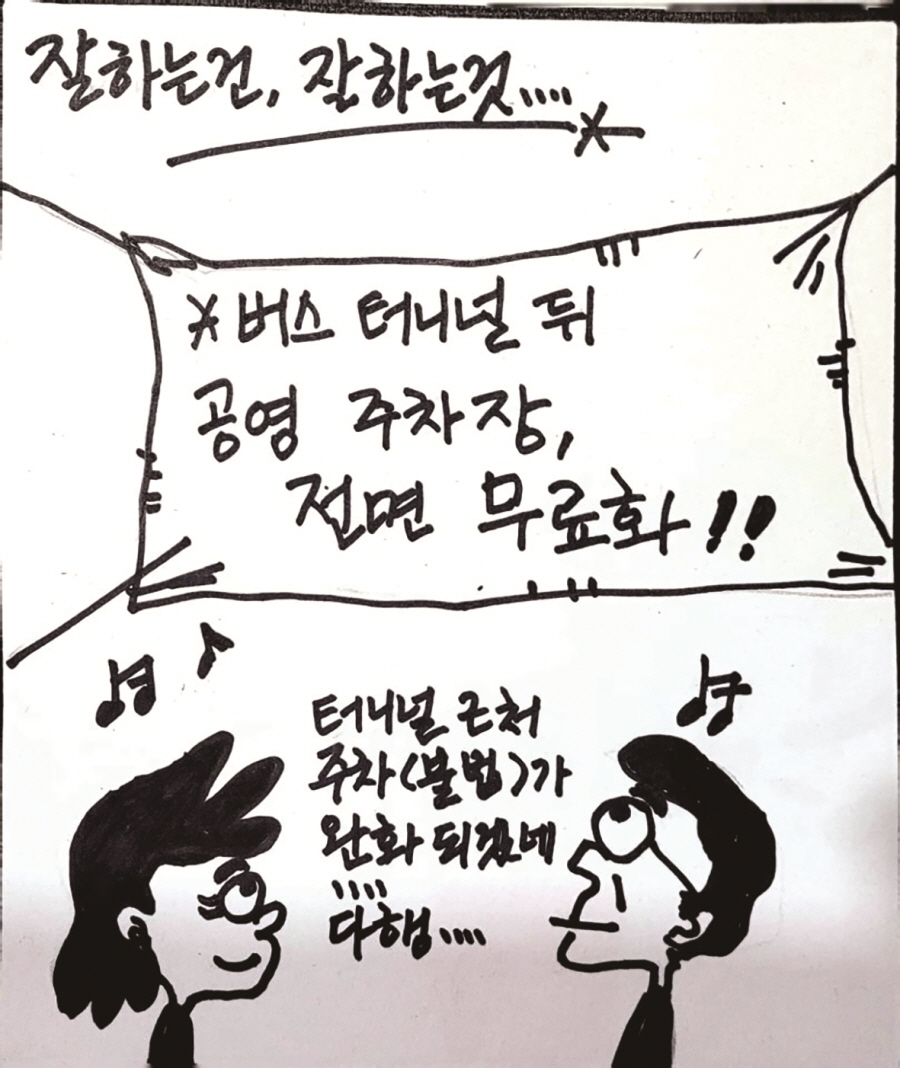 잘하는건, 잘하는것....
*버스 터니널 뒤
공영 주차장,
전면 무료화!!
터니널 근처
주차(불법)가
완화 되겠네
....
다행....